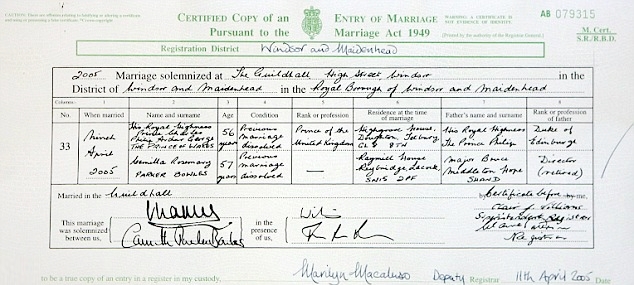 CERTIFIED COPY of an ENTRY OF MARRIAGE
Pursuant to the Marriage Act 1949
WARNING: A CERTIFICATE IS NOT EVIDENCE OF IDENTITY.
AB 079315
M. Cert.
S.R./R.B.D.
Registration District Windsor and Maidenhead
2005 Marriage solemnized at The Guildhall High Street Windsor in the
District of Windsor and Maidenhead in the Royal Borough of Windsor and Maidenhead
Columns:- 1 2 3 4 5 6 7 8
No. When married Name and surname Age Condition Rank or profession Residence at the time of marriage Father's name and surname Rank or profession of father
33 Ninth April 2005
His Royal Highness Prince Charles Philip Arthur George THE PRINCE OF WALES 56 years Previous marriage dissolved Prince of the United Kingdom Highgrove House, Doughton Tetbury GL8 8TN His Royal Highness The Prince Philip Duke of Edinburgh
Camilla Rosemary PARKER BOWLES 57 years Previous marriage dissolved — Raymill House Reybridge, Lacock SN15 2PF Major Bruce Middleton Hope SHAND Director (retired)
Married in the Guildhall Certificate before by me,
This marriage was solemnized between us, Charles Camilla Parker Bowles in the presence of us, Clair J. Williams
Superintendent Registrar
Registrar
to be a true copy of an entry in a register in my custody. Marilyn Macaluso Deputy Registrar 11th April 2005 Date